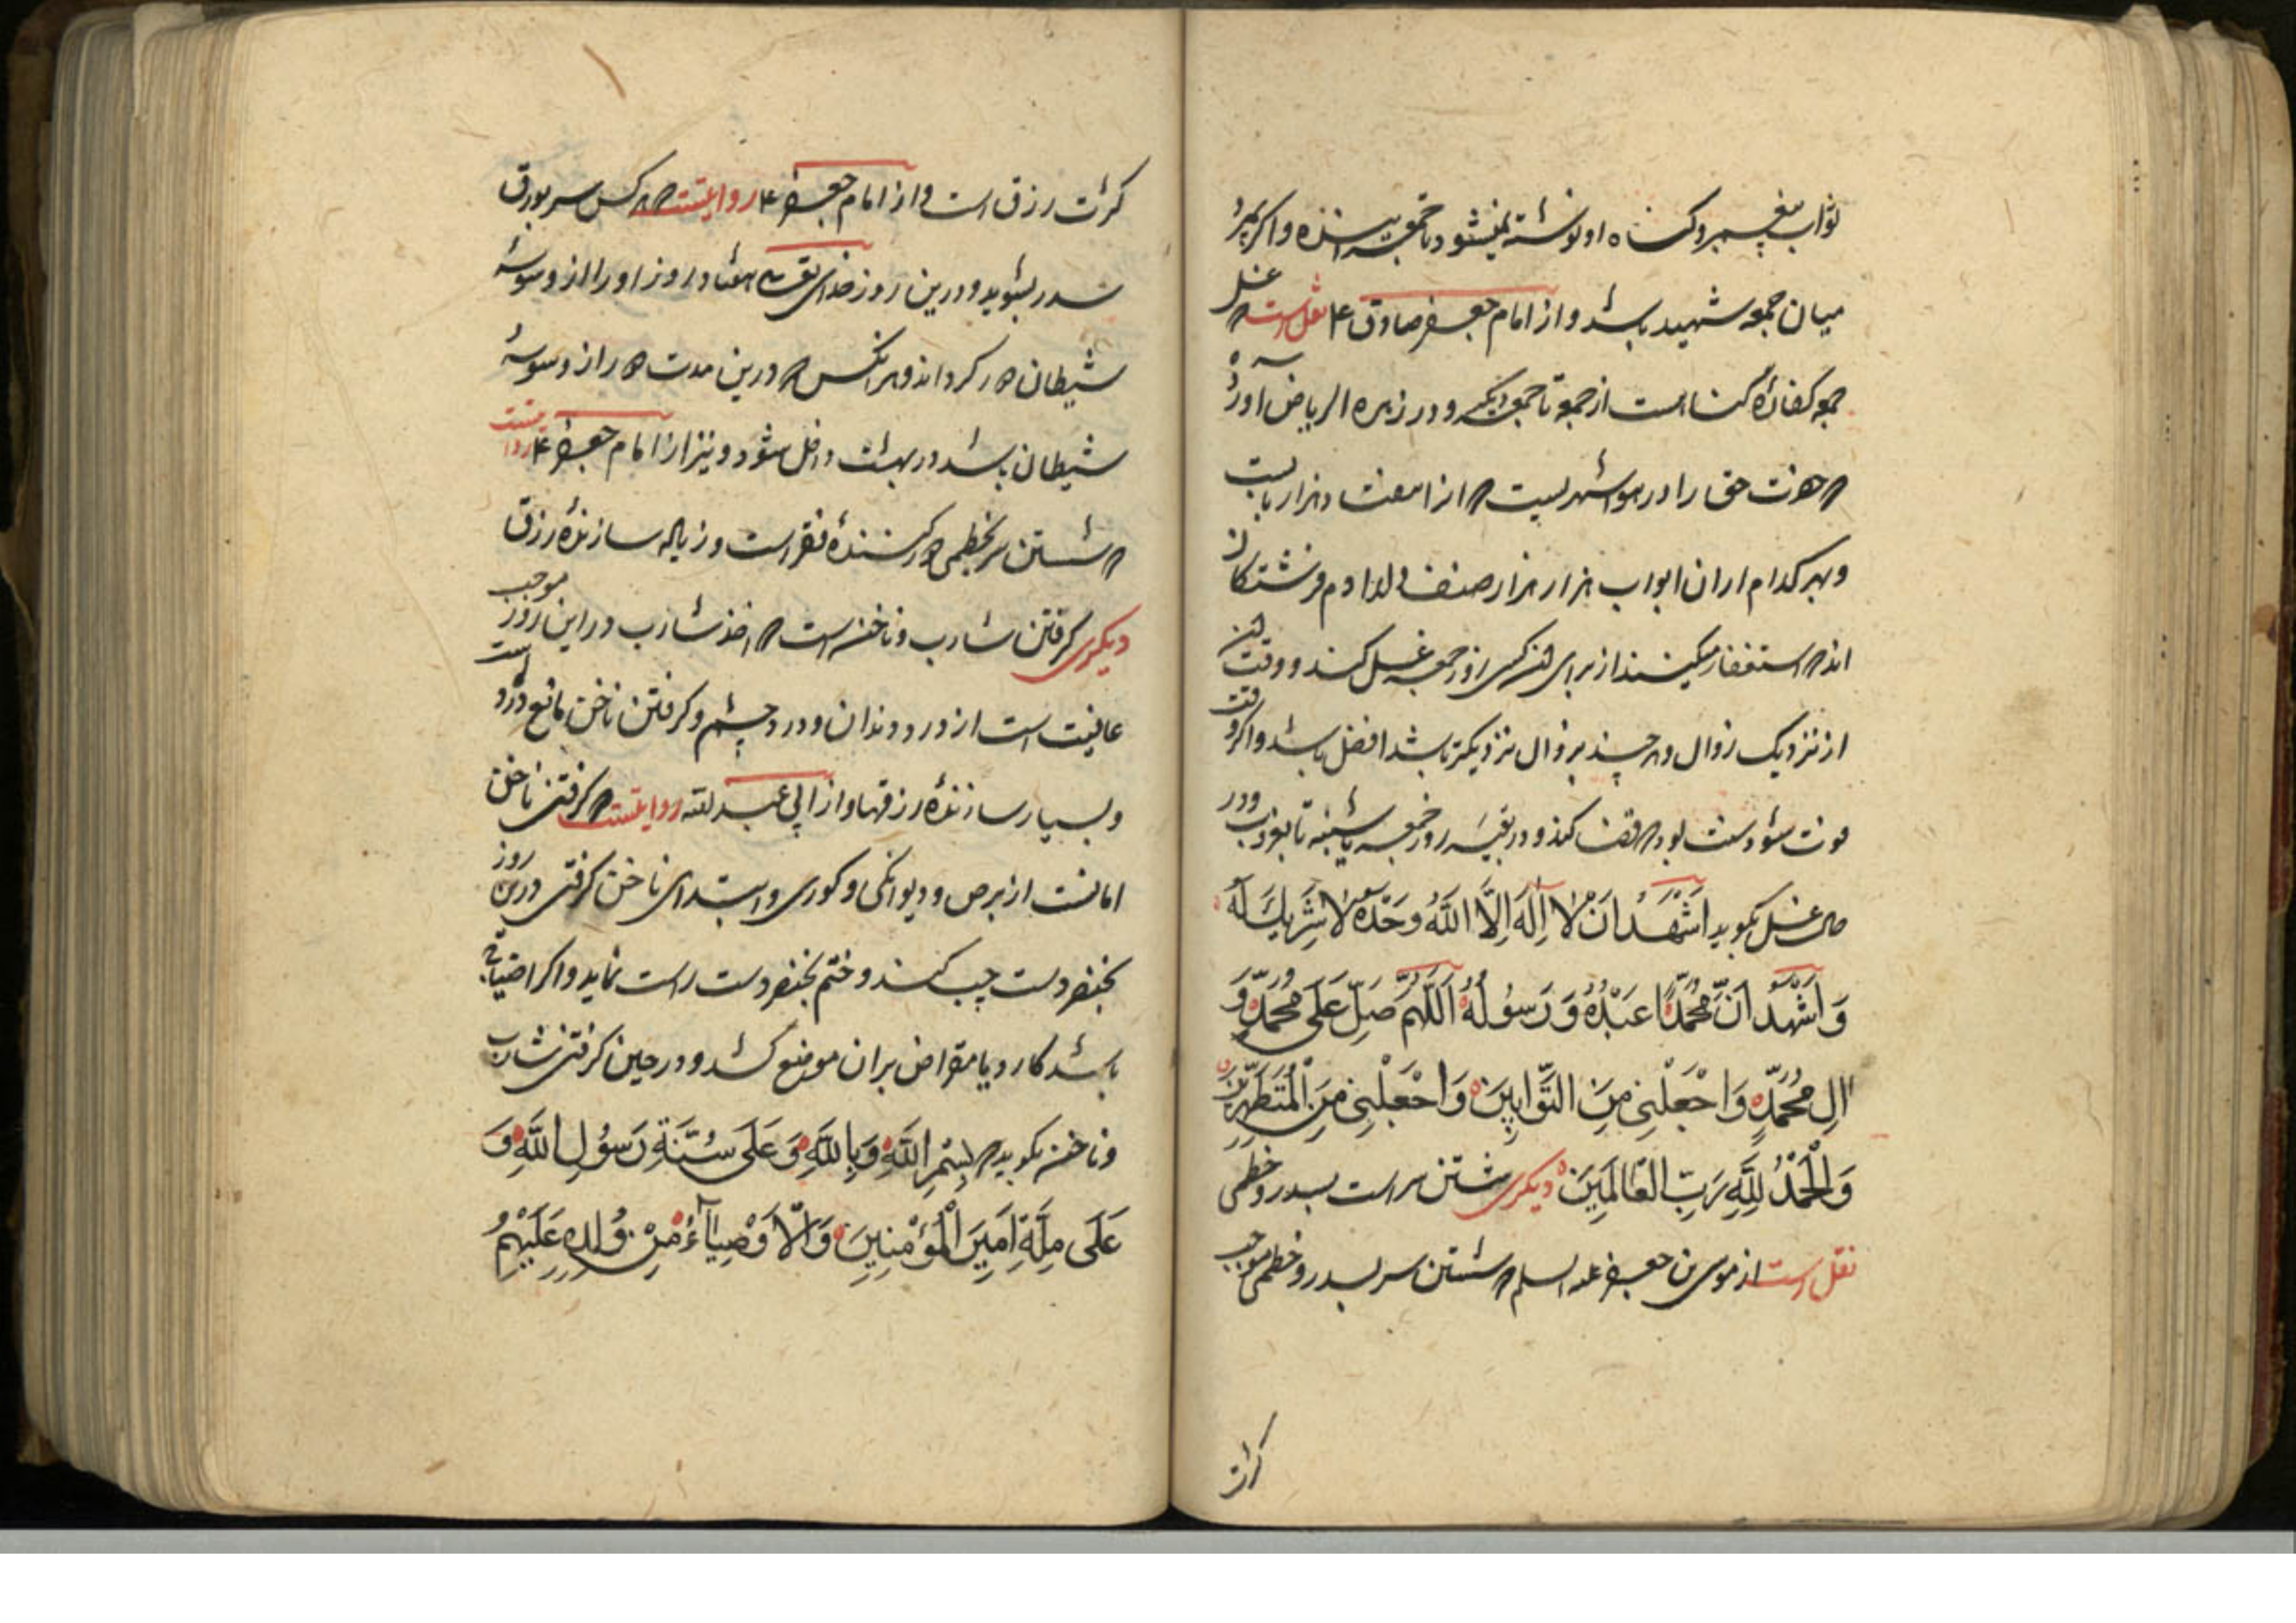 ثواب پیغمبر و گناه او نوشته نمیشود تا جمعه آینده و اگر بمیرد
میان جمعه شهید باشد و از امام جعفر صادق ۴ نقل است که غسل
جمعه کفارهٔ گناهست از جمعه تا جمعه دیگر و در زهره الریاض آورده
که حضرت حق را در هوا شهریست که از هفتاد هزار بابست
و بهر کدام ازان ابواب هزار هزار صنف اولاد آدم و فرشتگان
اند که استغفار میکنند از برای هر کسی که روز جمعه غسل کند و وقتش
از نزدیک زوال و هر چند بزوال نزدیکتر باشد افضل باشد و اگر وقت
فوت شود سنت بود که قضا کند و در بقیه روز جمعه یا شنبه تا بغروب و در
حال غسل بگوید اَشْهَدُ اَنْ لا اِلهَ اِلَّا اللّٰهُ وَحْدَهُ لا شَرِیكَ لَهُ
وَ اَشْهَدُ اَنَّ مُحَمَّدًا عَبْدُهُ وَ رَسُولُهُ اَللّٰهُمَّ صَلِّ عَلَی مُحَمَّدٍ وَ
الِ مُحَمَّدٍ وَاجْعَلْنِی مِنَ التَّوَّابِینَ وَاجْعَلْنِی مِنَ الْمُتَطَهِّرِینَ
وَالْحَمْدُ لِلّٰهِ رَبِّ الْعَالَمِینَ دیگری شستن سر است بسدر و خطمی
نقل است از موسی بن جعفر علیه السلم که شستن سر بسدر و خطمی موجب
کثرت
کثرت رزق است و از امام جعفر ۴ روایتست که هر کس سر بورق
سدر بشوید و درین روز خدای تعالی هفتاد روز او را از وسوسهٔ
شیطان دور کرداند و هر انکس که درین مدت دور از وسوسهٔ
شیطان باشد در بهشت داخل شود و نیز از امام جعفر ۴ روایتست
که شستن سر بخطمی دور کنندهٔ فقر است و زیاله سازندهٔ رزق
دیگری گرفتن شارب و ناخن است که اخذ شارب در این روز موجب
عافیت است از درد دندان و درد چشم و گرفتن ناخن مانع درد است
و بسیار سازندهٔ رزقها و از ابی عبد الله روایتست که گرفتن ناخن
امانست از برص و دیوانگی و کوری و ابتدای ناخن گرفتن درین روز
بخنصر دست چپ کنند و ختم بخنصر دست راست نماید و اگر احتیاج
باشد کارد یا مقراض بران موضع کشد و در حین گرفتن شارب
و ناخن بگوید که بِسْمِ اللّٰهِ وَ بِاللّٰهِ وَ عَلَی سُنَّةِ رَسُولِ اللّٰهِ وَ
عَلَی مِلَّةِ اَمِیَنِ الْمُؤْمِنِینَ وَ الْاَوْصِیَآءِ مِنْ وُلْدِهِ عَلَیْهِمُ